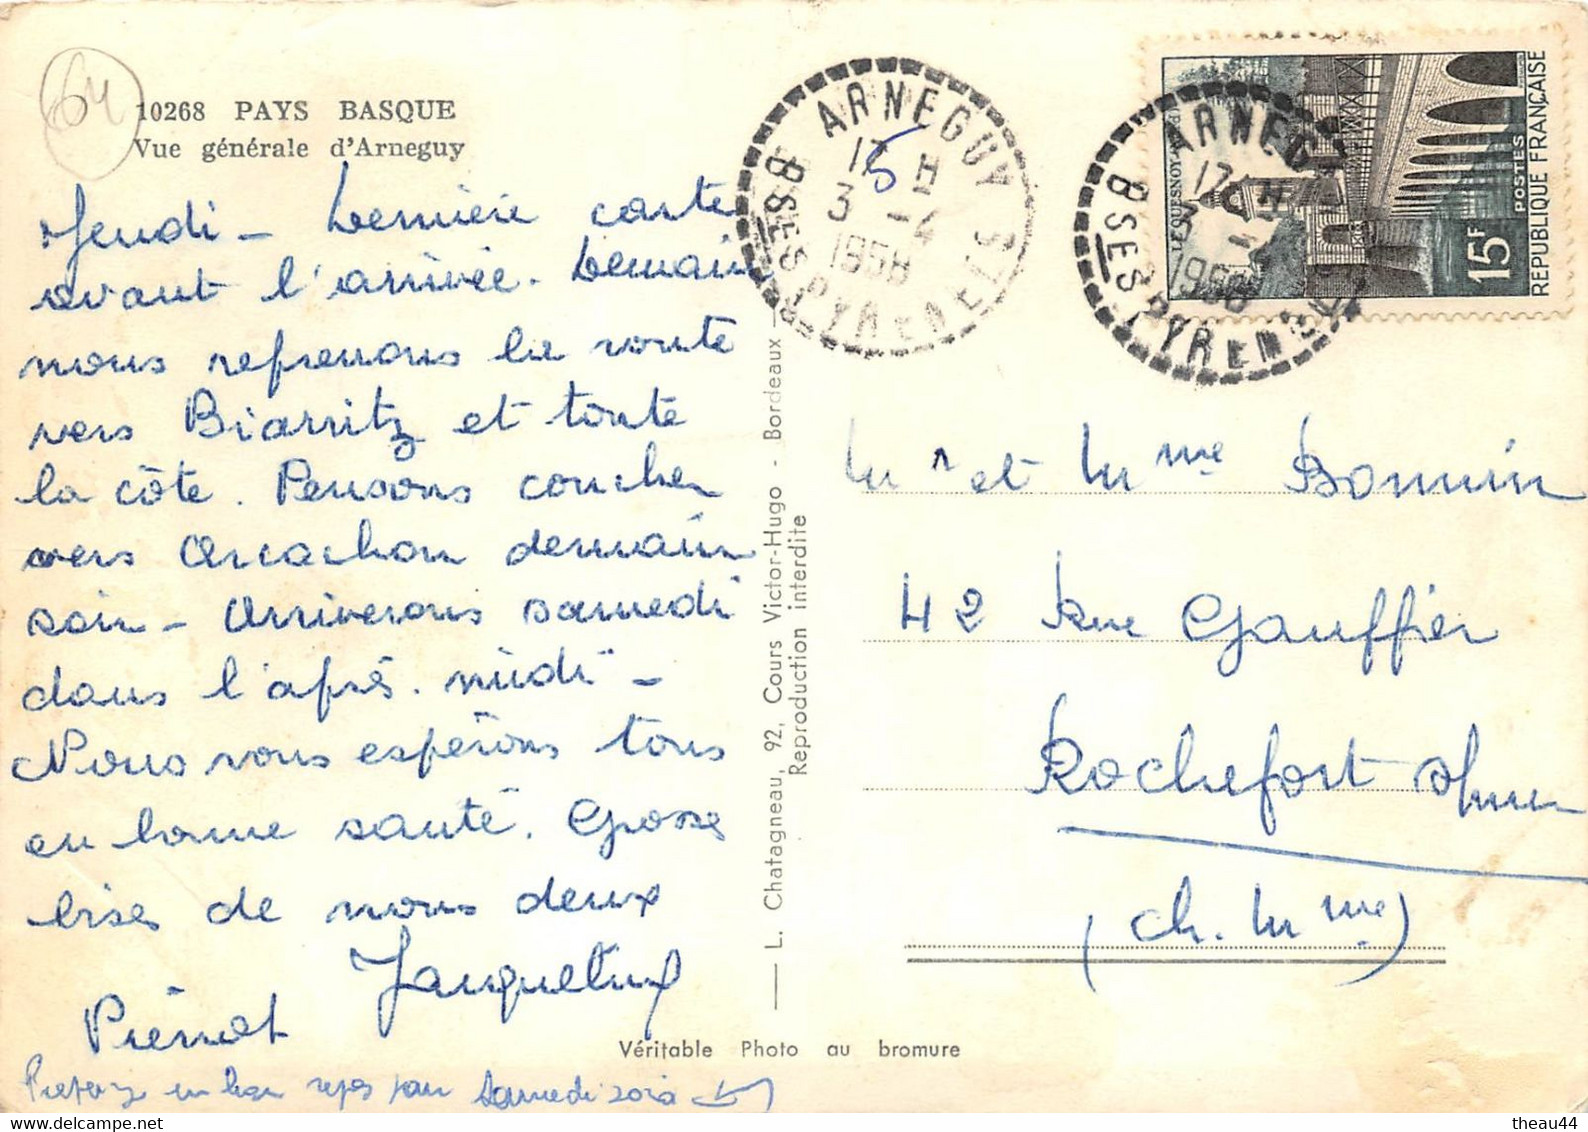 64
10268 PAYS BASQUE
Vue générale d'Arneguy
Jeudi - Dernière carte
avant l'arrivée. Demain
nous reprenons la route
vers Biarritz et toute
la côte. Pensons coucher
vers Arcachon demain
soir - Arriverons samedi
dans l'après-midi -
Nous vous espérons tous
en bonne santé. Grosses
bises de nous deux
Jacqueline
Pierrot
Préparez un bon repas pour Samedi soir
L. Chatagneau, 92, Cours Victor-Hugo - Bordeaux
Reproduction interdite
Véritable Photo au bromure
ARNEGUY
17 H
3 -4
1958
BSES PYRENEES
5
ARNEGUY
17 H
3 -4
1958
BSES PYRENEES
LE QUESNOY
15F
POSTES
RÉPUBLIQUE FRANÇAISE
Mr et Mme Bonnin
42 Rue Gauffier
Rochefort s/mer
(Ch. Mme)
theau44